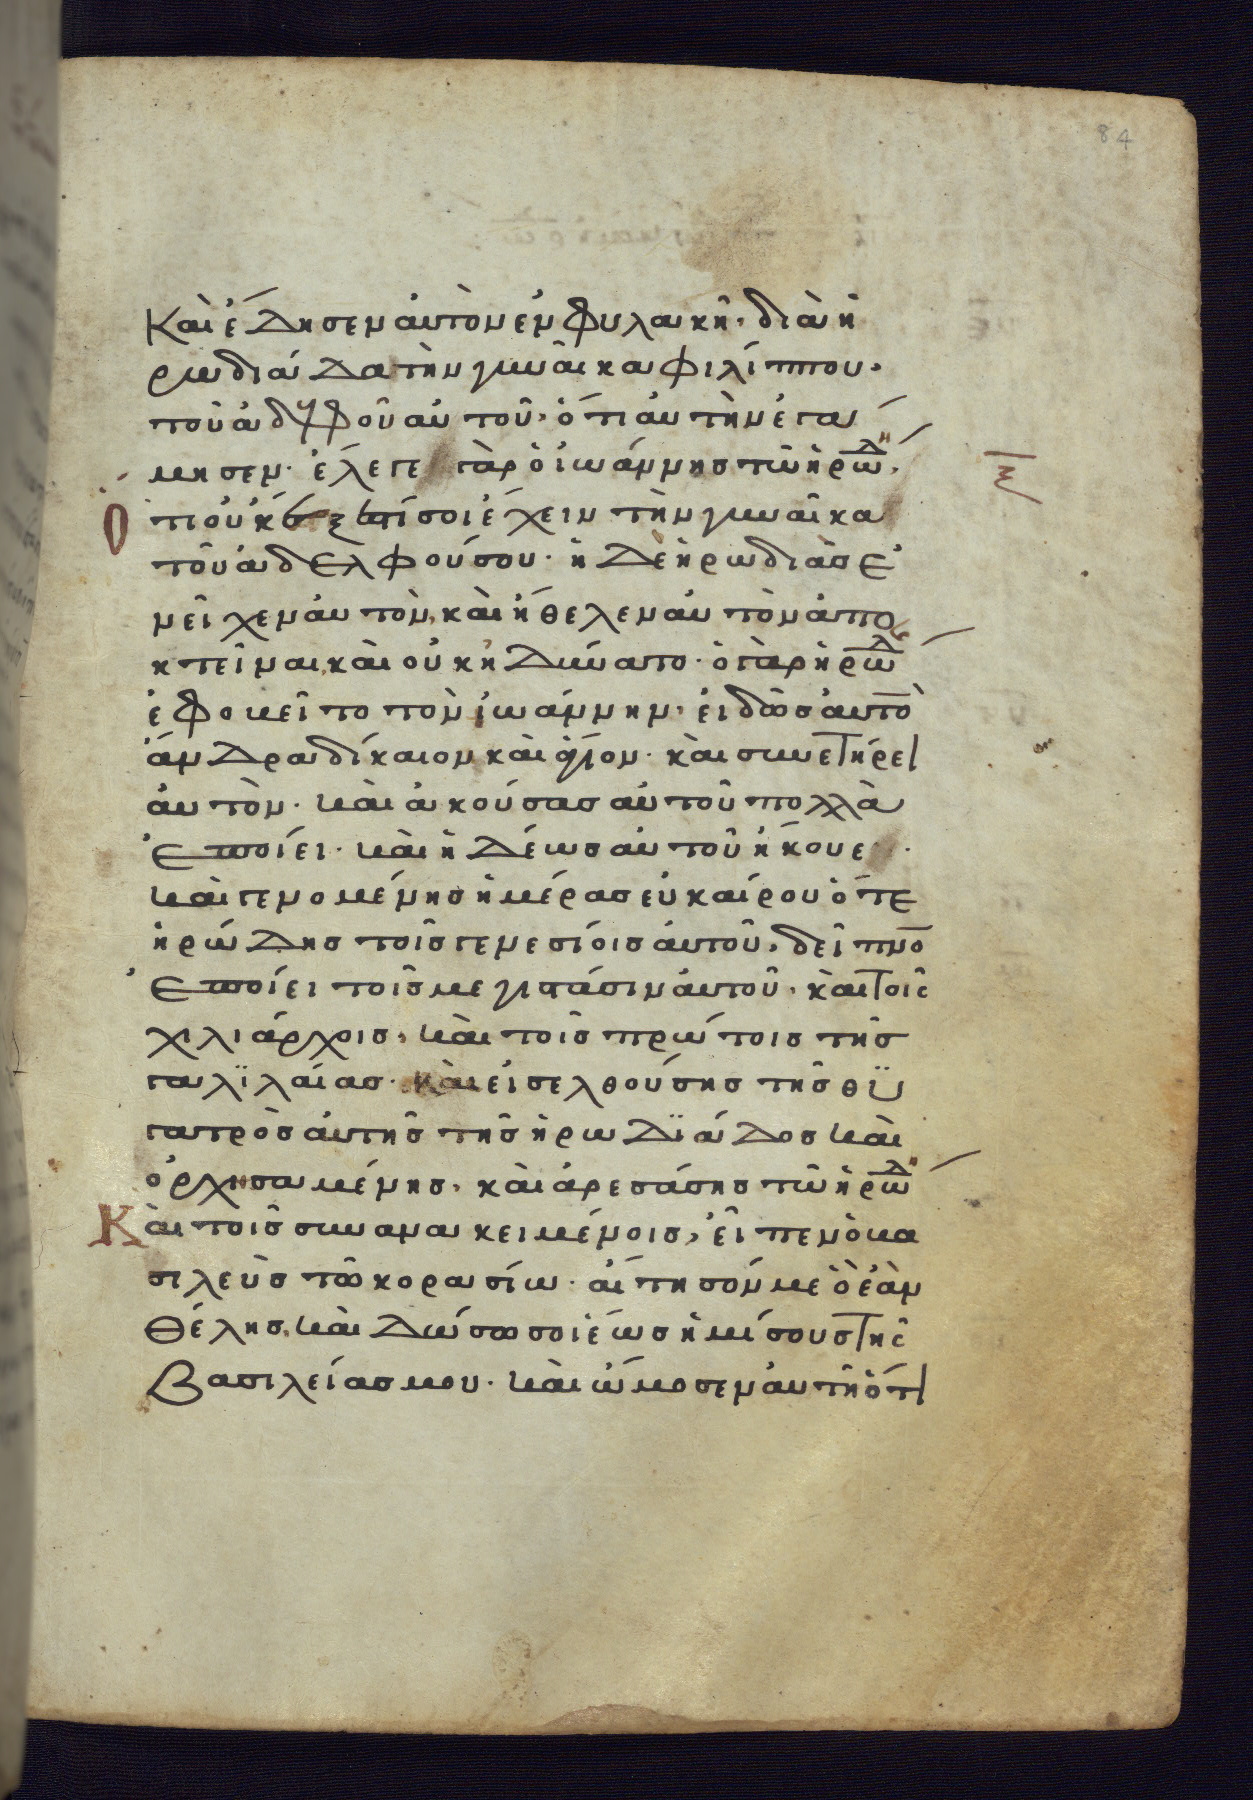 84
Καὶ ἔδησεν αὐτὸν ἐν φυλακῆ· διὰ ἡ
ρωδιάδα τὴν γυναῖκα φιλίππου·
τοῦ ἀδελφοῦ αὐτοῦ· ὅτι αὐτὴν ἐγά
μησεν· ἔλεγε γὰρ ὁ ἰωάννης τῶ ἡρώδη·
Ὅ
τι οὐκ ἔξεστί σοι ἔχειν τὴν γυναῖκα
τοῦ ἀδελφοῦ σου· ἡ δὲ ἡρωδιὰς ἐ
νεῖχεν αὐτὸν, καὶ ἤθελεν αὐτὸν ἀπο
κτεῖναι, καὶ οὐκ ἠδύνατο· ὁ γὰρ ἡρώδης
ἐφοβεῖτο τὸν ἰωάννην· εἰδὼς αὐτὸν
ἄνδρα δίκαιον καὶ ἅγιον· καὶ συνετήρει
αὐτὸν· καὶ ἀκούσας αὐτοῦ πολλὰ
ἐποίει· καὶ ἡδέως αὐτοῦ ἤκουε·
καὶ γενομένης ἡμέρας εὐκαίρου ὅτε
ἡρώδης τοῖς γενεσίοις αὐτοῦ, δεῖπνον
ἐποίει τοῖς μεγιστάσιν αὐτοῦ· καὶ τοῖς
χιλιάρχοις, καὶ τοῖς πρώτοις τῆς
γαλϊλαίας· καὶ εἰσελθούσης τῆς θϋ
γατρὸς αὐτῆς τῆς ἡρωδϊάδος καὶ
ὀρχησαμένης, καὶ ἀρεσάσης τῶ ἡρώδη
Καὶ τοῖς συνανακειμένοις, εἶπεν ὁ βα
σιλεὺς τῶ κορασίω· αἴτησόν με ὃ ἐὰν
θέλης, καὶ δώσω σοι ἕως ἡμίσους τῆς
βασιλείας μου· καὶ ὤμοσεν αὐτῆ ὅτι